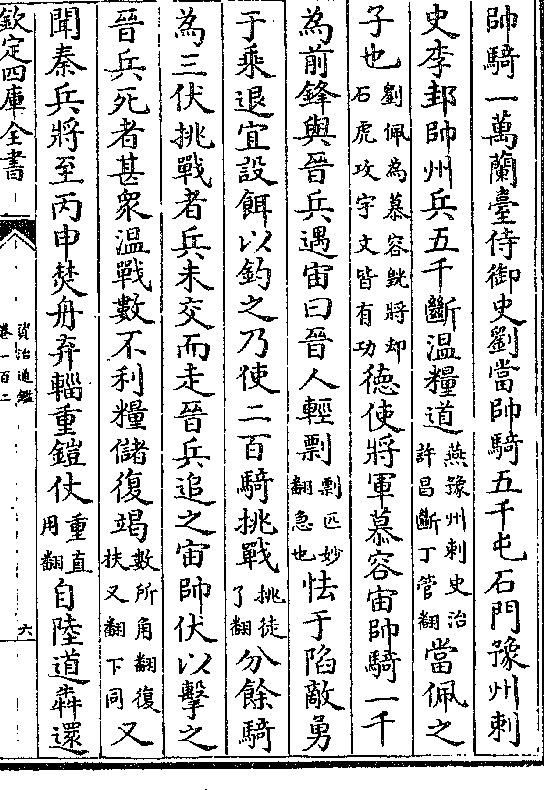 帥騎一萬蘭臺侍御史劉當帥騎五千屯石門豫州刺
史李邽帥州兵五千斷溫糧道燕豫州刺史治許昌斷丁管翻當佩之
子也劉佩為慕容皝將却石虎攻宇文皆有功德使將軍慕容宙帥騎一千
為前鋒與晉兵遇宙曰晉人輕剽剽匹妙翻急也怯于陷敵勇
于乘退宜設餌以釣之乃使二百騎挑戰挑徒了翻分餘騎
為三伏挑戰者兵未交而走晉兵追之宙帥伏以擊之
晉兵死者甚衆溫戰數不利糧儲復竭數所角翻復扶又翻下同又
聞秦兵將至丙申焚舟弃輜重鎧仗重直用翻自陸道犇還
欽定四庫全書
資治通鑑
卷一百二
六